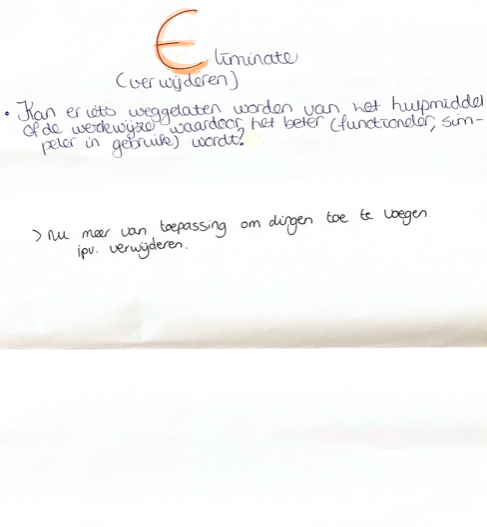 Eliminate
(verwijderen)
• Kan er iets weggelaten worden van het hulpmiddel
of de werkwijze waardoor het beter (functioneler, sim-
peler in gebruik) wordt?
> nu meer van toepassing om dingen toe te voegen
ipv. verwijderen.